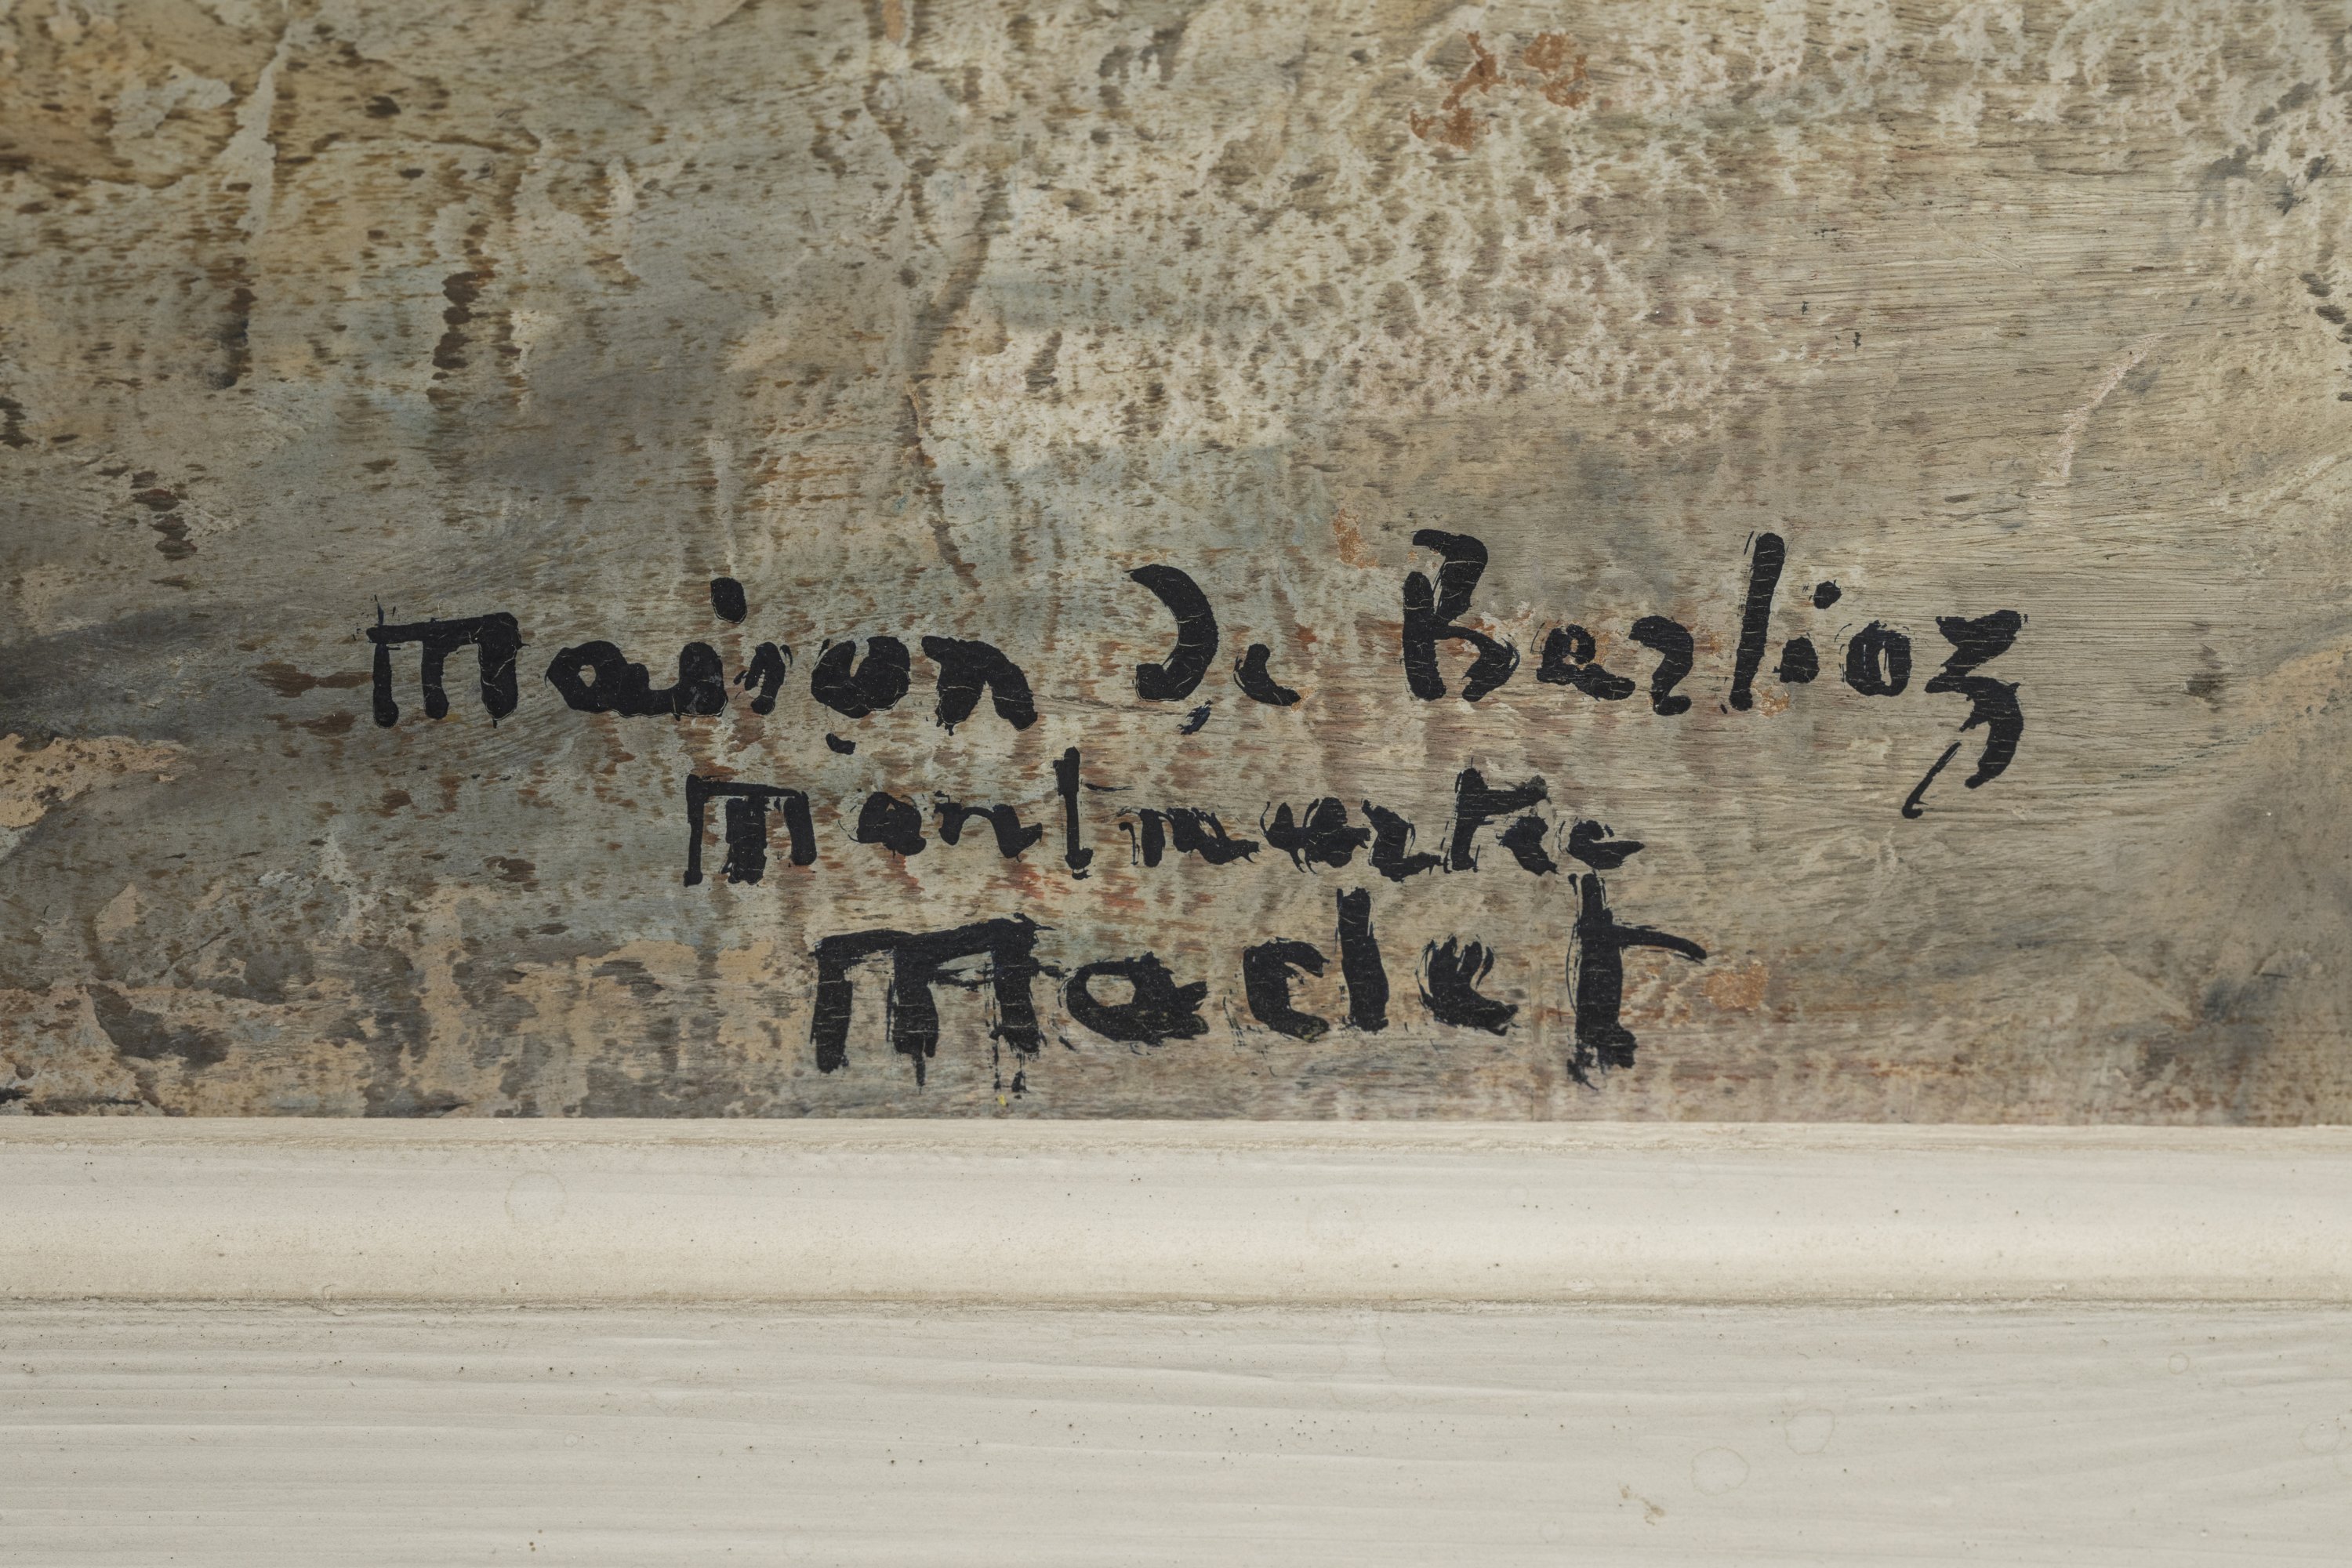 Maison de Berlioz
Montmartre
Maclet